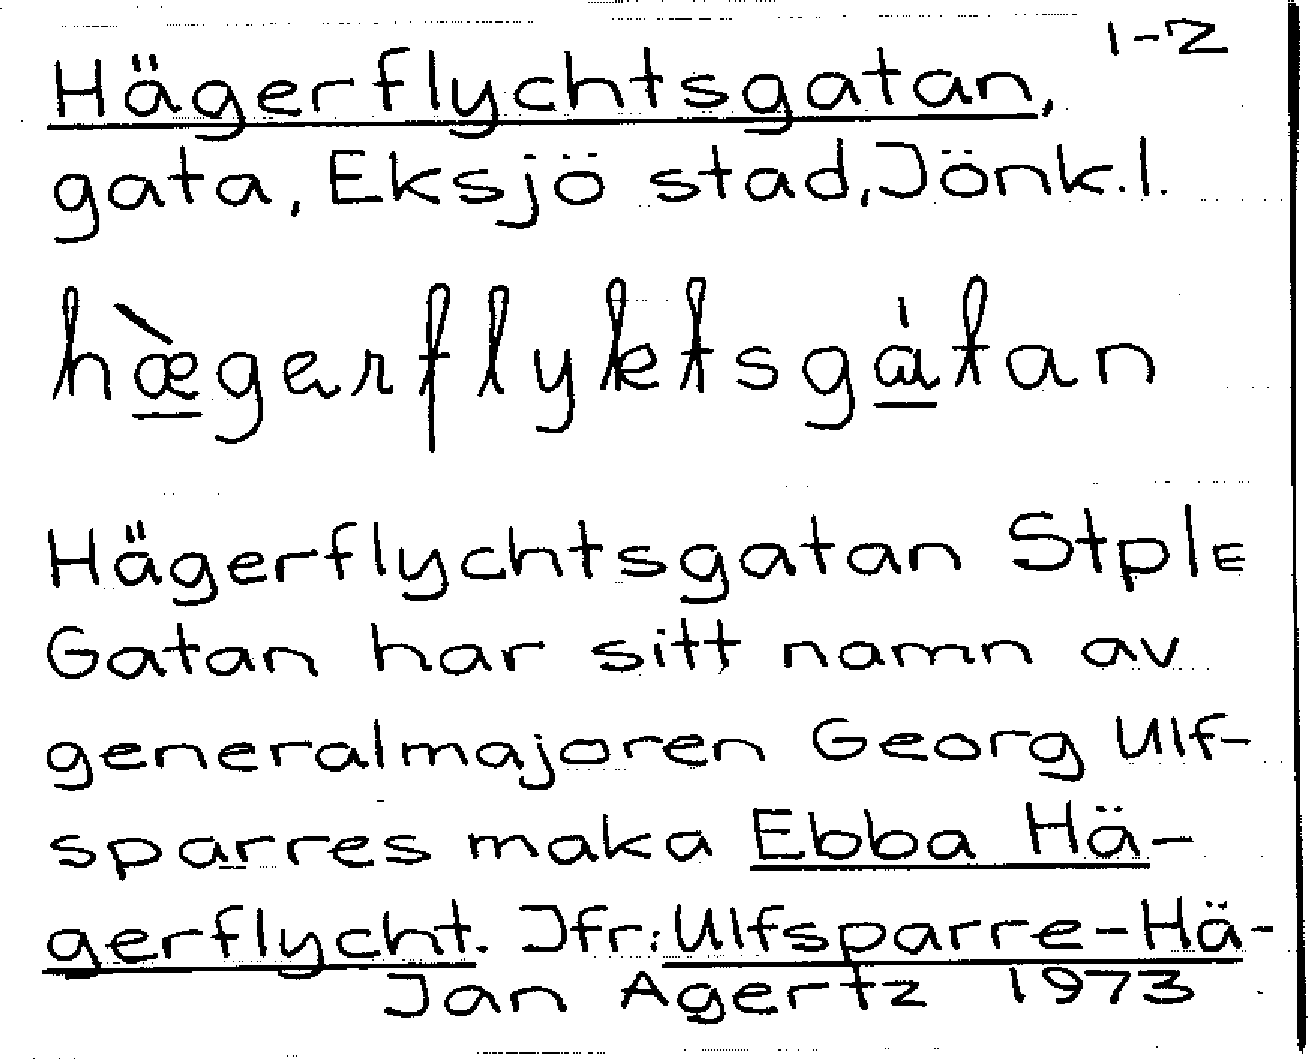 1-2
Hägerflychtsgatan,
gata, Eksjö stad, Jönk.l.
hæ̀gerflyktsgátan
Hägerflychtsgatan StplE
Gatan har sitt namn av
generalmajoren Georg Ulf-
sparres maka Ebba Hä-
gerflycht. Jfr: Ulfsparre-Hä-
Jan Agertz 1973